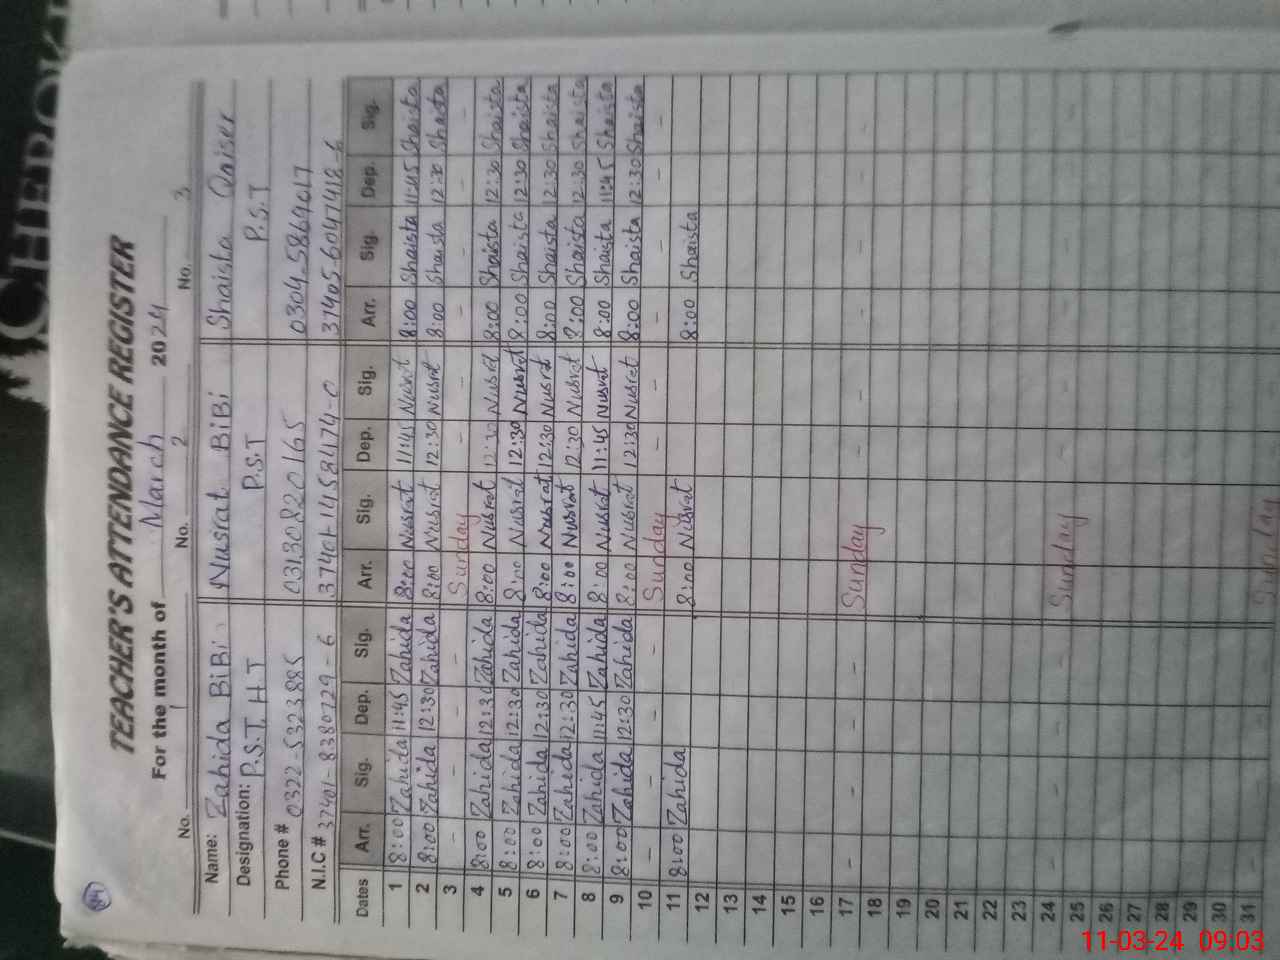 CHEROK
TEACHER'S ATTENDANCE REGISTER
For the month of March 2024
No. 1 No. 2 No. 3
Name: Zahida BiBi Nusrat BiBi Shaista Qaiser
Designation: P.S.T. H.T P.S.T P.S.T
Phone # 0322-5323885 03130820165 0304-5869017
N.I.C # 37401-8380729-6 37401-1458174-0 37405-6047418-6
Dates Arr. Sig. Dep. Sig. Arr. Sig. Dep. Sig. Arr. Sig. Dep. Sig.
1 8:00 Zahida 11:45 Zahida 8:00 Nusrat 11:45 Nusrat 8:00 Shaista 11:45 Shaista
2 8:00 Zahida 12:30 Zahida 8:00 Nusrat 12:30 Nusrat 8:00 Shaista 12:30 Shaista
3 - - - - Sunday - - - - - -
4 8:00 Zahida 12:30 Zahida 8:00 Nusrat 12:30 Nusrat 8:00 Shaista 12:30 Shaista
5 8:00 Zahida 12:30 Zahida 8:00 Nusrat 12:30 Nusrat 8:00 Shaista 12:30 Shaista
6 8:00 Zahida 12:30 Zahida 8:00 Nusrat 12:30 Nusrat 8:00 Shaista 12:30 Shaista
7 8:00 Zahida 12:30 Zahida 8:00 Nusrat 12:30 Nusrat 8:00 Shaista 12:30 Shaista
8 8:00 Zahida 11:45 Zahida 8:00 Nusrat 11:45 Nusrat 8:00 Shaista 11:45 Shaista
9 8:00 Zahida 12:30 Zahida 8:00 Nusrat 12:30 Nusrat 8:00 Shaista 12:30 Shaista
10 - - - - Sunday - - - - - -
11 8:00 Zahida 8:00 Nusrat 8:00 Shaista
12
13
14
15
16
17 - - - - Sunday - - - - - -
18
19
20
21
22
23
24 - - - - Sunday - - - - - -
25
26
27
28
29
30
31 Sunday
11-03-24 09:03